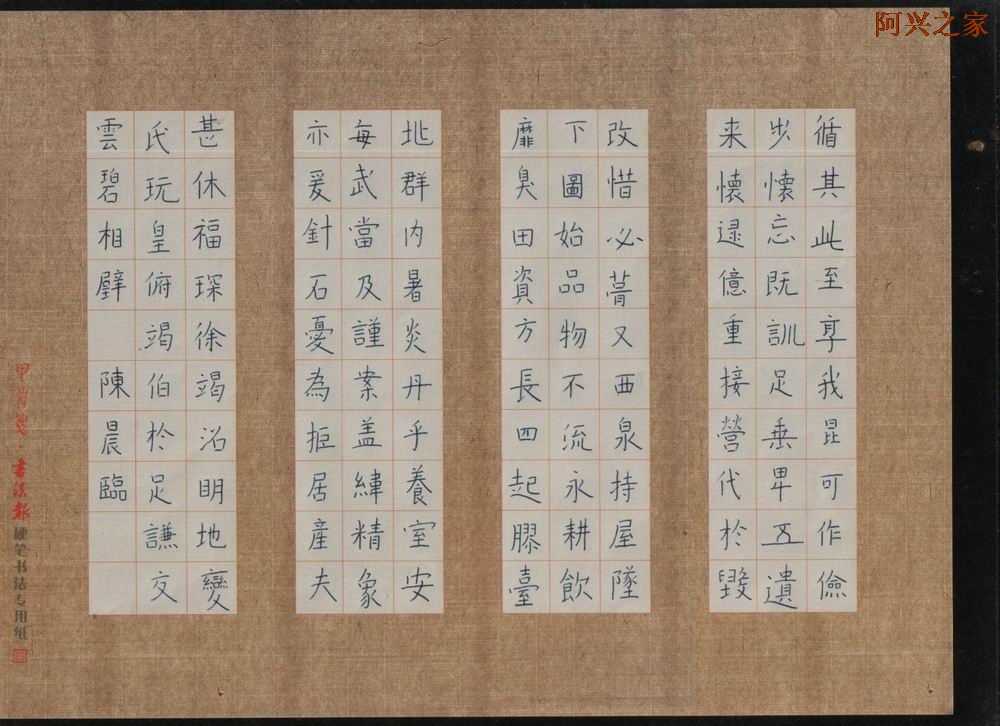 阿兴之家
循其此至享我昆可作儉
步懷忘既訓足垂卑五遺
来懷逯億重接營代於毀
改惜必菁又西泉持屋墜
下圖始品物不流永耕飲
靡臭田資方長四起膠臺
兆群内暑炎丹乎養室安
每武當及謹案盖緯精象
亦爰針石憂為拒居產夫
甚休福琛徐竭沼明地變
氏玩皇俯竭伯於足謙交
雲碧相臂 陳晨臨
書法報
硬笔书法专用纸